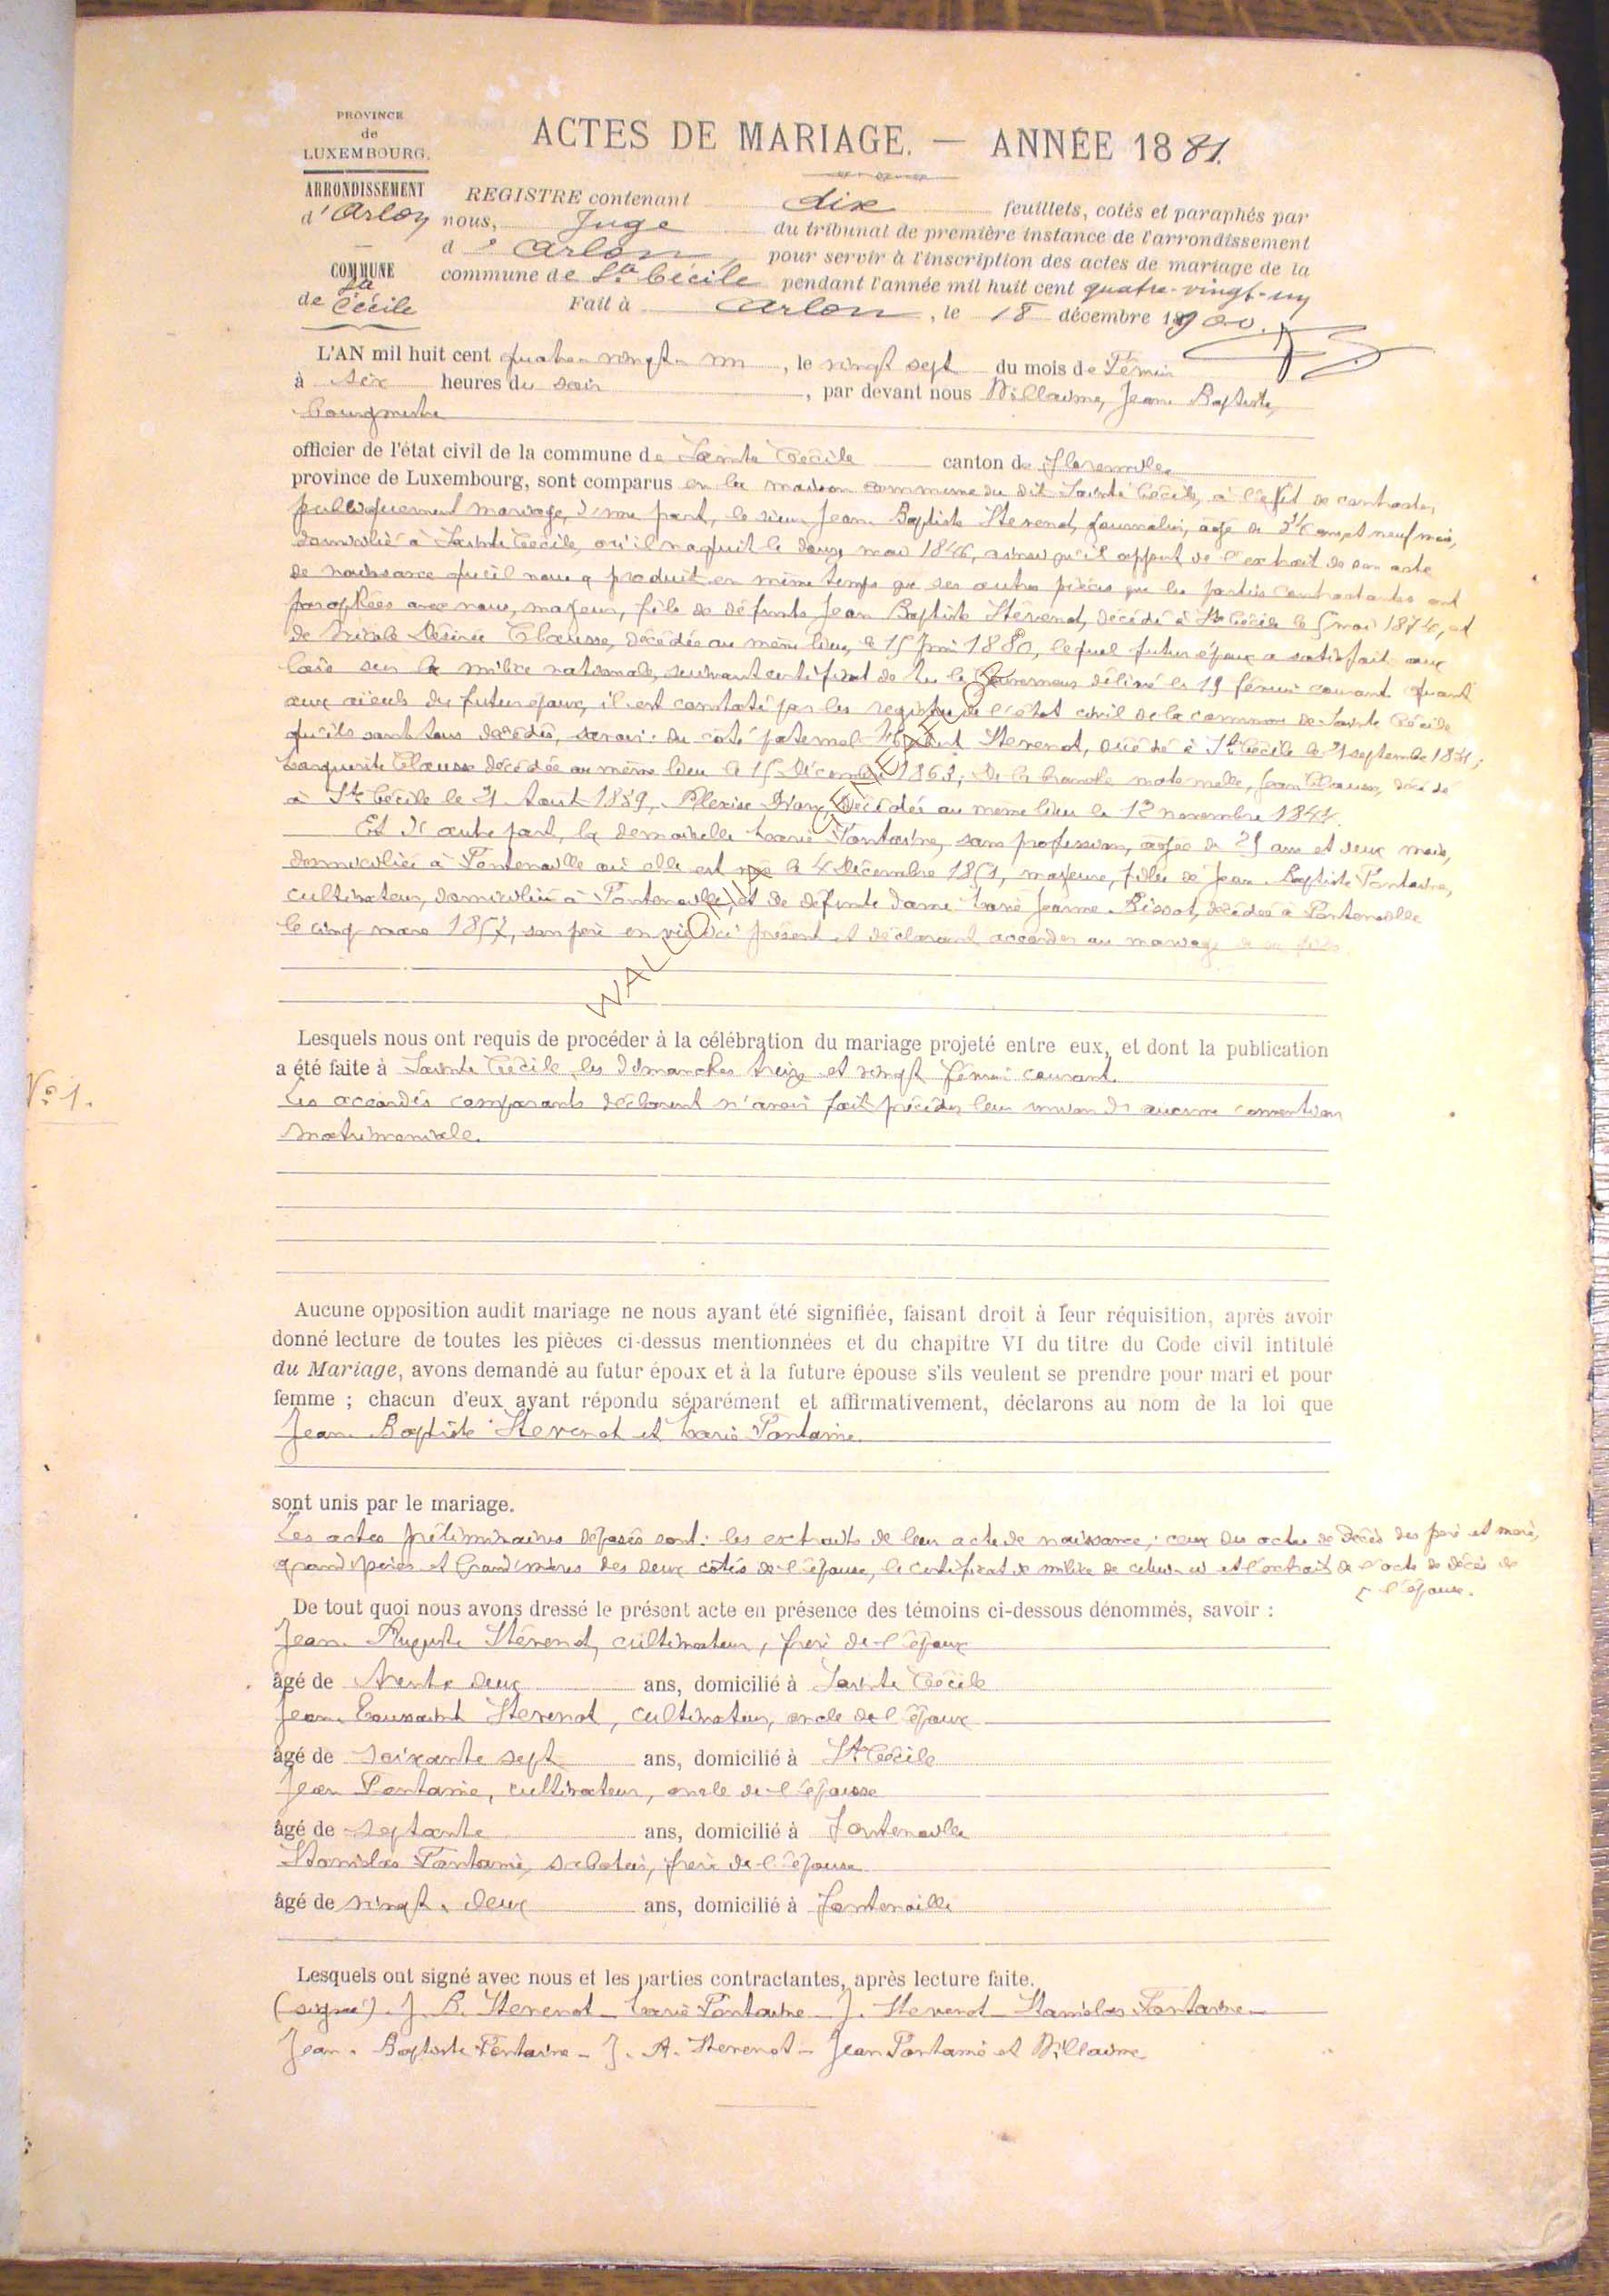 PROVINCE
de
LUXEMBOURG.
ARRONDISSEMENT
d'Arlon
COMMUNE
de Ste Cécile
ACTES DE MARIAGE. — ANNÉE 1881.
REGISTRE contenant dix feuillets, cotés et paraphés par
nous, Juge du tribunal de première instance de l'arrondissement
d'Arlon, pour servir à l'inscription des actes de mariage de la
commune de Ste Cécile pendant l'année mil huit cent quatre-vingt-un
Fait à Arlon, le 18 décembre
L'AN mil huit cent quatre-vingt-un, le vingt sept du mois de Février
à six heures du soir, par devant nous Willaume, Jean Baptiste,
bourgmestre
officier de l'état civil de la commune de Sainte Cécile canton de Florenville
province de Luxembourg, sont comparus en la maison commune du dit Sainte Cécile, à l'effet de contracter
publiquement mariage, d'une part, le sieur Jean Baptiste Stevenot, journalier, âgé de 34 ans et neuf mois,
domicilié à Sainte Cécile, où il naquit le douze mai 1846, ainsi qu'il appert de l'extrait de son acte
de naissance qu'il nous a produit en même temps que ses autres pièces que les parties contractantes ont
paraphées avec nous, majeur, fils de défunts Jean Baptiste Stévenot, décédé à Ste Cécile le 5 mai 1874, et
de Nicole Désirée Clausse, décédée au même lieu, le 15 1880, lequel futur époux a satisfait aux
lois sur la milice nationale, suivant certificat de Mr le Gouverneur délivré le 19 février courant. Quant
aux aïeuls du futur époux, il est constaté par les registres de l'état civil de la commune de Sainte Cécile
qu'ils sont tous décédés, savoir: du côté paternel Stevenot, décédé à Ste Cécile le 21 septembre 1831;
Marguerite Clausse décédée au même lieu le 15 Décembre 1863; De la branche maternelle, Jean Clausse, décédé
à Ste Cécile le 31 Août 1859, décédée au même lieu le 12 novembre 1844.
Et d'autre part, la demoiselle Marie Fontaine, sans profession, âgée de 29 ans et deux mois,
domiciliée à Fontenoille où elle est née le 4 Décembre 1851, majeure, fille de Jean Baptiste Fontaine,
cultivateur, domicilié à Fontenoille, et de défunte dame Marie Jeanne Bissot, décédée à Fontenoille
le cinq mars 1857, son père en vie ici présent et déclarant accorder au mariage de sa fille.
Lesquels nous ont requis de procéder à la célébration du mariage projeté entre eux, et dont la publication
a été faite à Sainte Cécile les dimanches treize et vingt février courant.
N° 1.
Les accordés comparants déclarent n'avoir fait précéder leur union d'aucune convention
matrimoniale.
Aucune opposition audit mariage ne nous ayant été signifiée, faisant droit à leur réquisition, après avoir
donné lecture de toutes les pièces ci-dessus mentionnées et du chapitre VI du titre du Code civil intitulé
du Mariage, avons demandé au futur époux et à la future épouse s'ils veulent se prendre pour mari et pour
femme ; chacun d'eux ayant répondu séparément et affirmativement, déclarons au nom de la loi que
Jean Baptiste Stevenot et Marie Fontaine
sont unis par le mariage.
Les actes préliminaires déposés sont: les extraits de leur acte de naissance; ceux des actes de décès des père et mère,
grand pères et Grand'mères des deux côtés de l'époux, le certificat de milice de celui-ci et l'extrait de l'acte de décès de
l'épouse.
De tout quoi nous avons dressé le présent acte en présence des témoins ci-dessous dénommés, savoir :
Jean Auguste Stévenot, cultivateur, frère de l'époux
âgé de trente deux ans, domicilié à Sainte Cécile
Jean Toussaint Stevenot, cultivateur, oncle de l'époux
âgé de soixante sept ans, domicilié à Ste Cécile
Jean Fontaine, cultivateur, oncle de l'épouse
âgé de septante ans, domicilié à Fontenoille
Stanislas Fontaine, sabotier, frère de l'épouse
âgé de vingt-deux ans, domicilié à Fontenoille
Lesquels ont signé avec nous et les parties contractantes, après lecture faite.
(signé) J. B. Stevenot – Marie Fontaine – J. Stevenot – Stanislas Fontaine –
Jean-Baptiste Fontaine – J. A. Stevenot – Jean Fontaine et Willaume